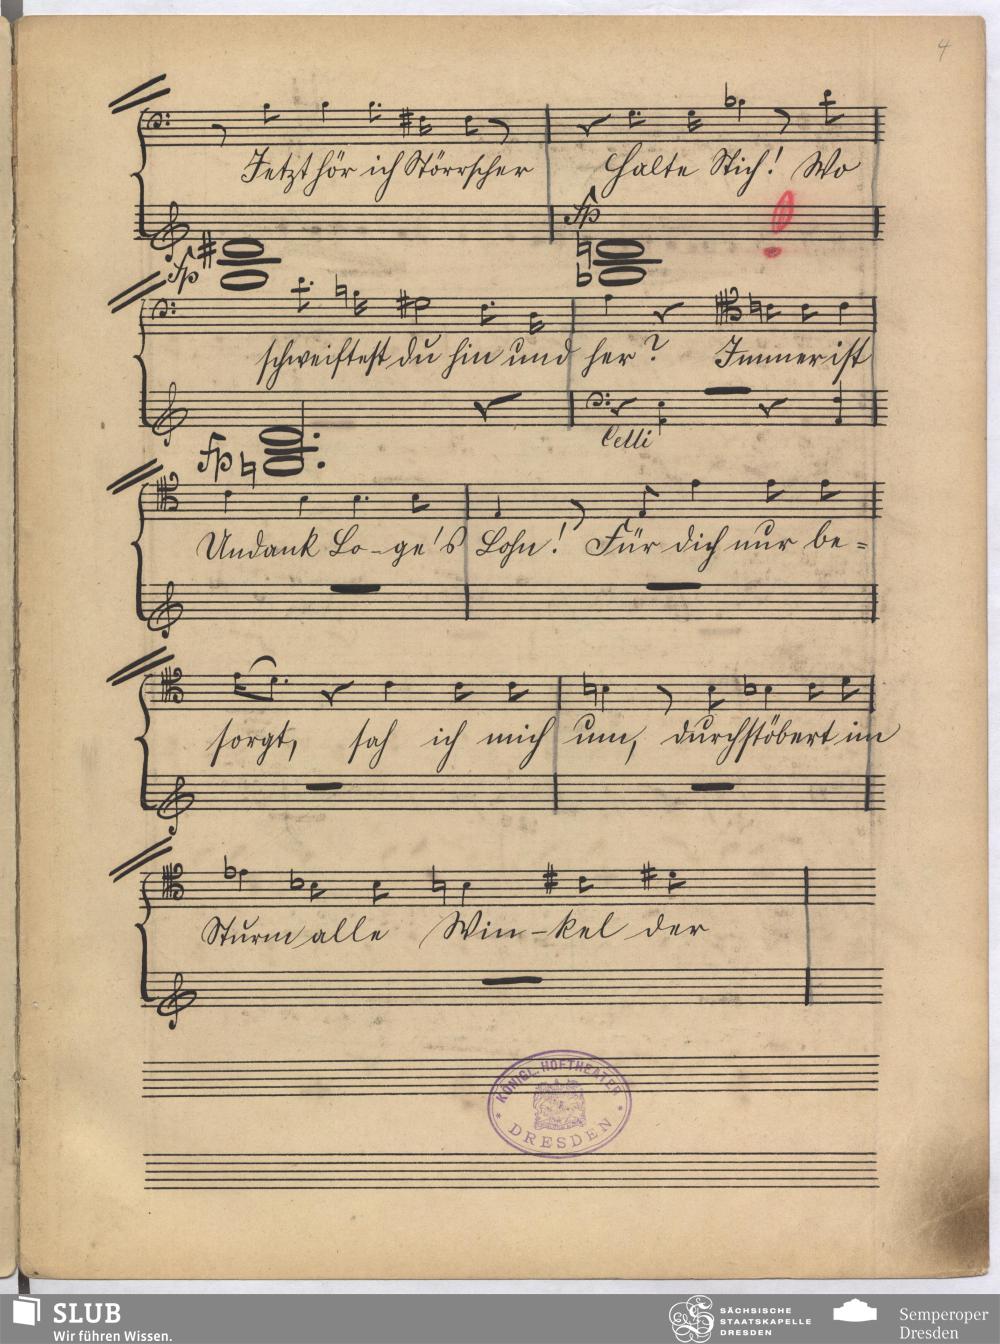 4
Jetzt hör ich Störrscher Halte Stich! Wo
fp
fp
schweiftest du hin und her? Immer ist
fp
Celli
Undank Lo-ge's Lohn! Für dich nur be=
sorgt, sah ich mich um, durchstöbert im
Sturm alle Win-kel der
KÖNIGL. HOFTHEATER
* DRESDEN *
SLUB
Wir führen Wissen.
SÄCHSISCHE
STAATSKAPELLE
DRESDEN
Semperoper
Dresden